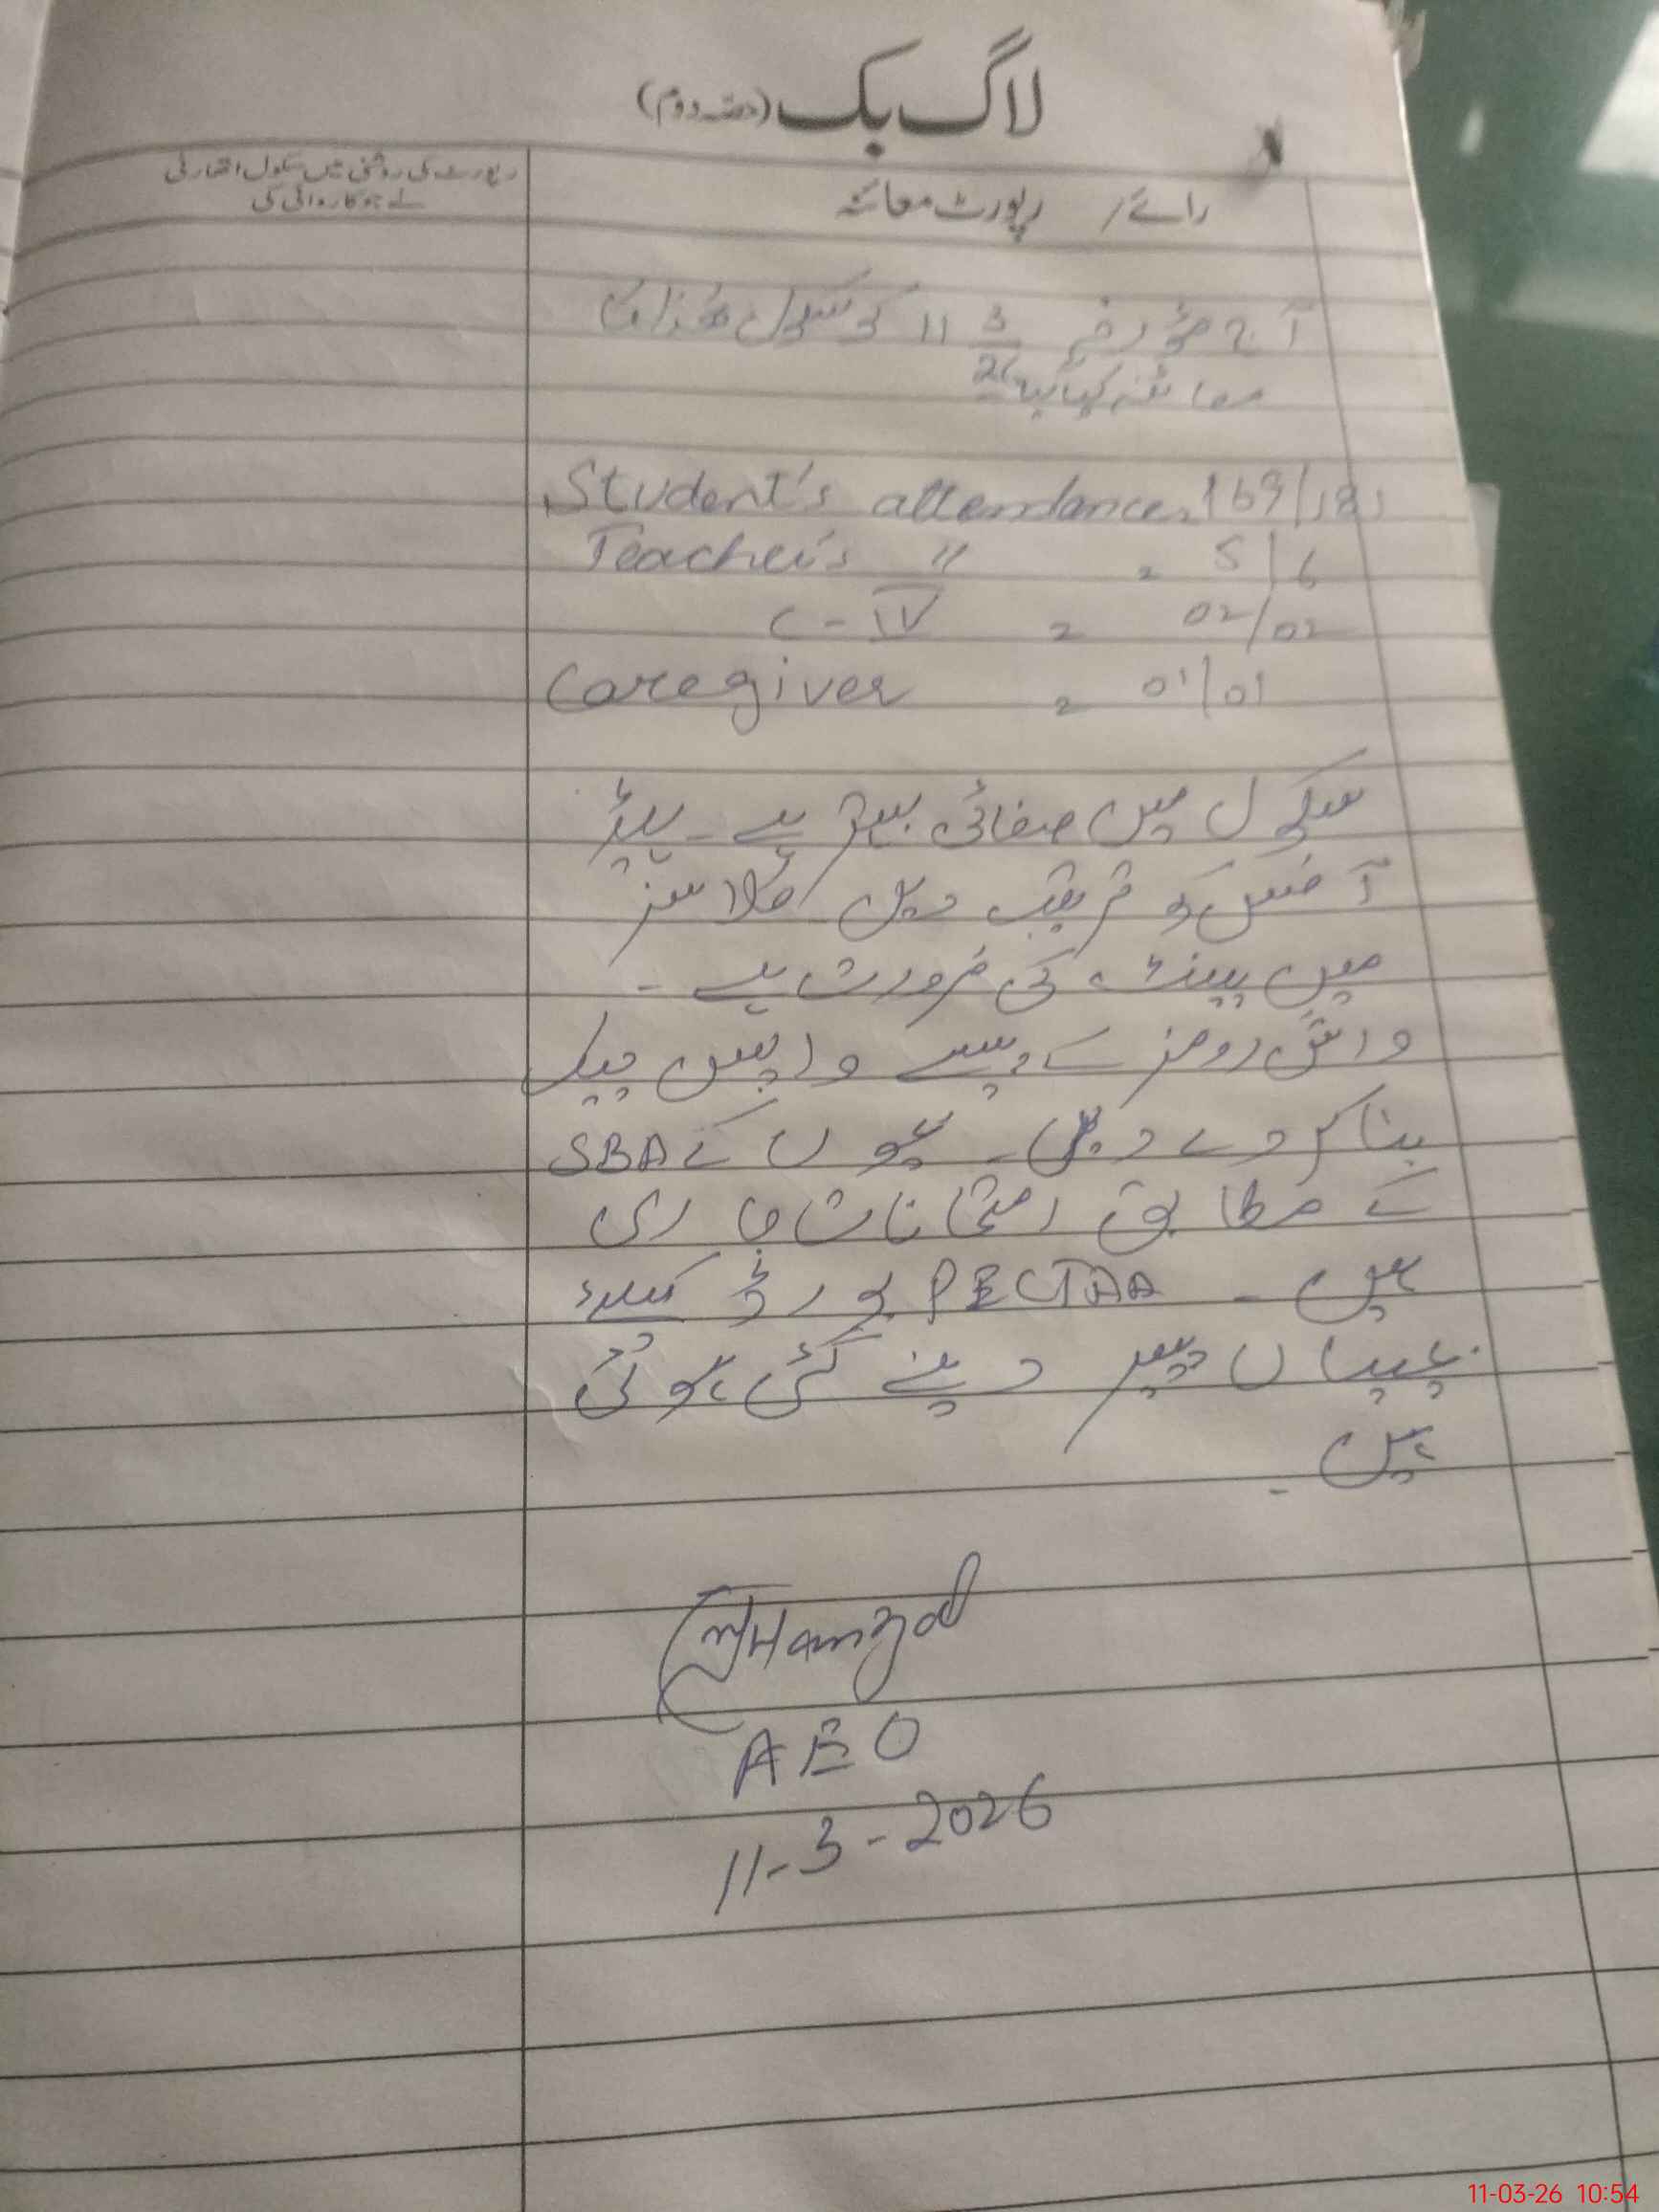 لاگ بک (حصہ دوم)
رائے / رپورٹ معائنہ
رپورٹ کی روشنی میں سکول اتھارٹی
نے جو کاروائی کی
آج مؤرخہ 11 3/26 کو سکول ھٰذا کا
معائنہ کیا گیا
Student's attendance 169/181
Teacher's " = 5/6
C-IV = 02/02
Caregiver = 01/01
سکول میں صفائی بہتر ہے۔ ہیڈ
آفس کے قریب دیں کلاسز
میں پینٹ کی ضرورت ہے۔
واش رومز کے پیسے واپس چیک
بنا کر دے دیں۔ بچوں کے SBA
کے مطابق امتحانات جاری
ہیں۔ PECTAA بورڈ کیلئے
بچیاں پیپر دینے گئی ہوئی
ہیں۔
Hamza
AEO
11-3-2026
11-03-26 10:54